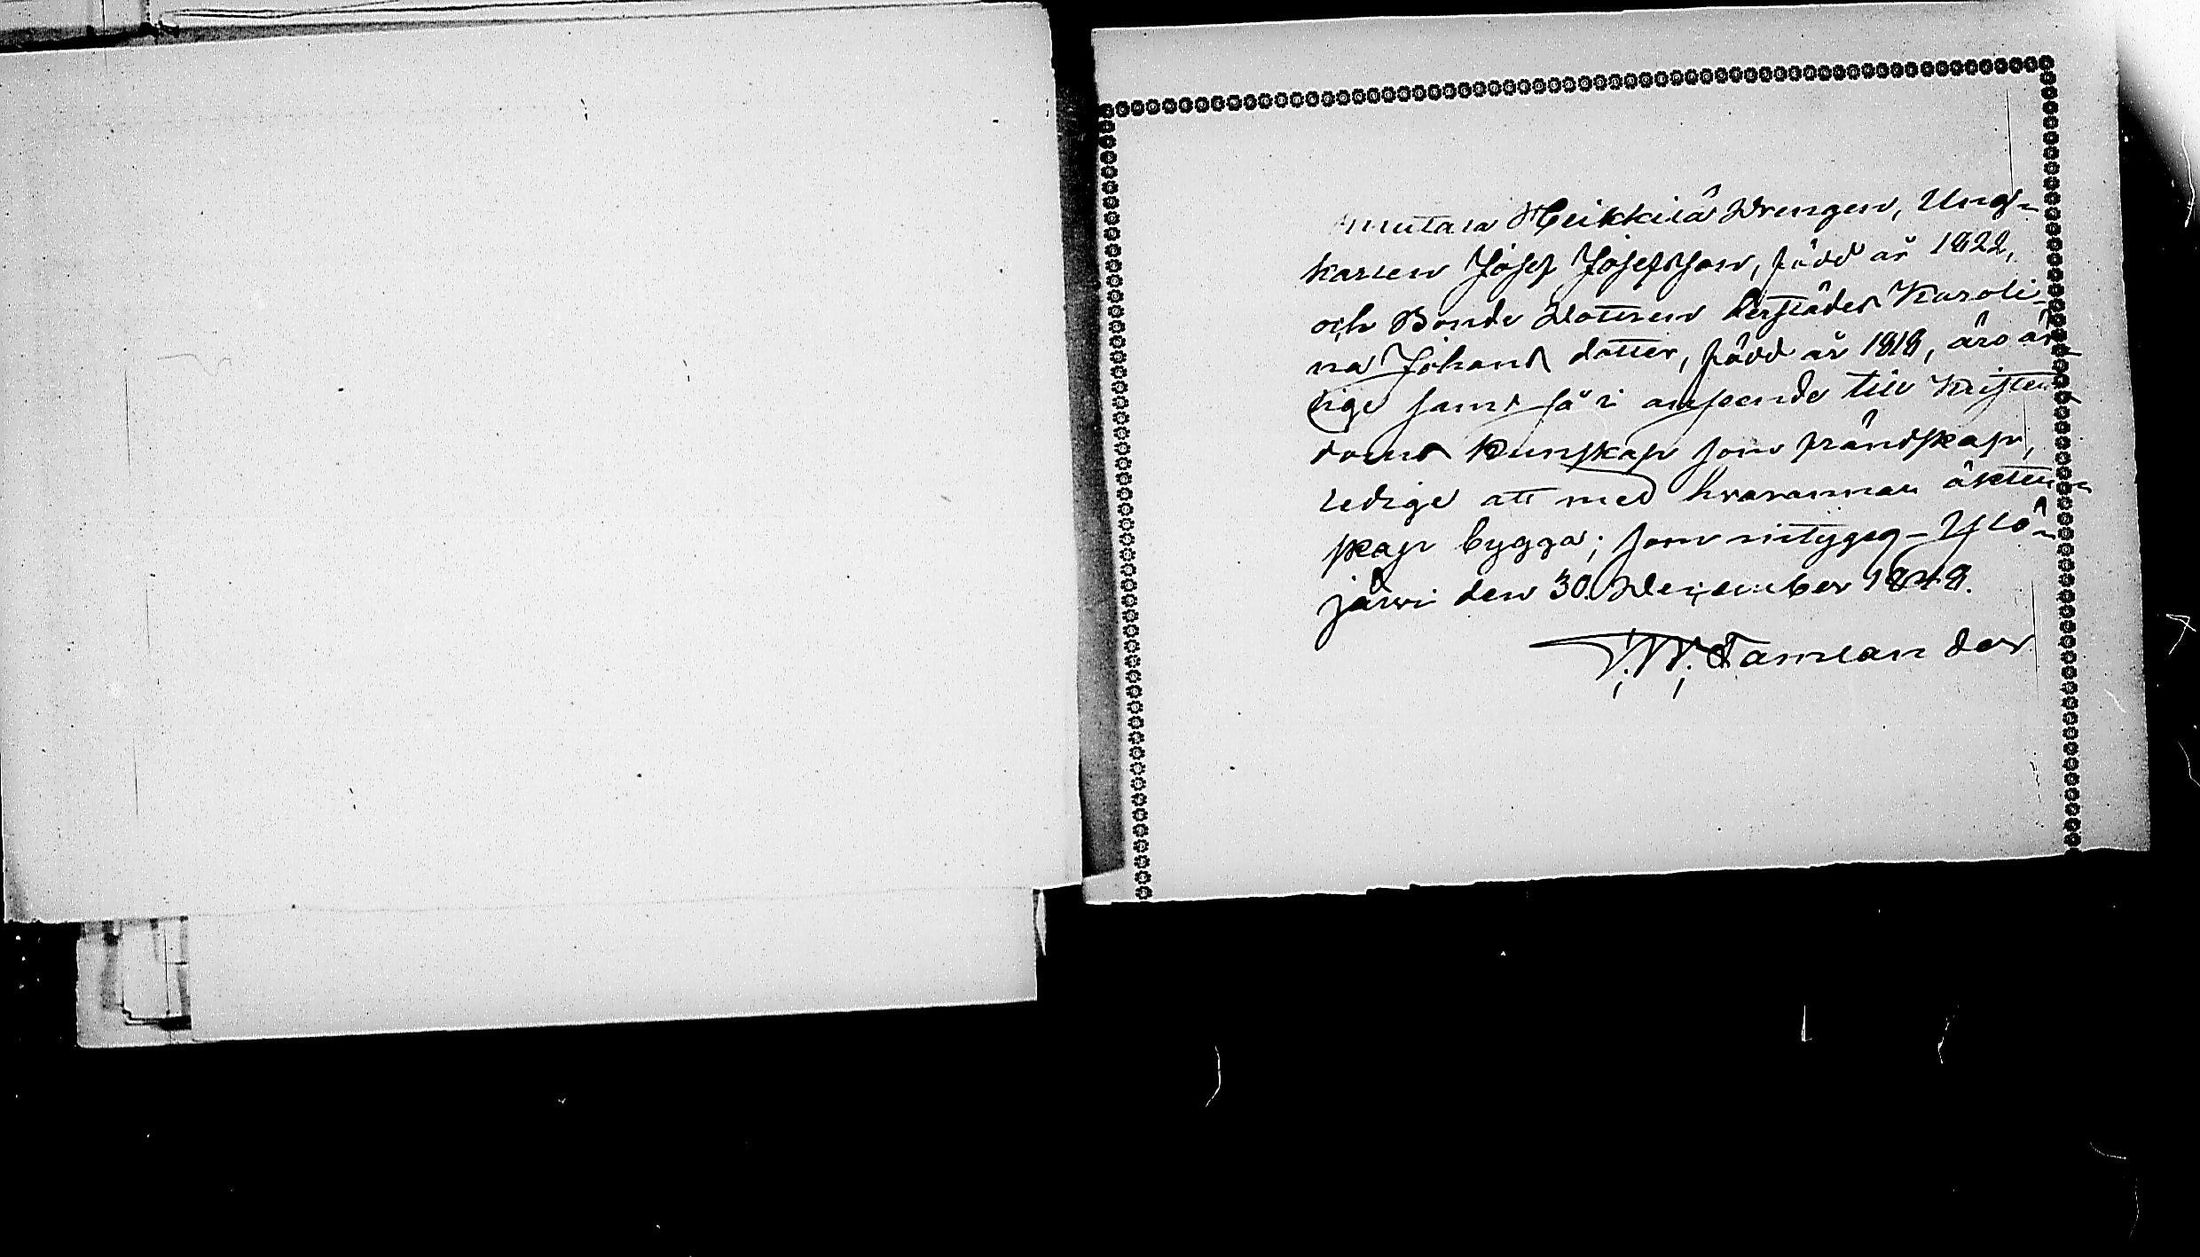 Mutala Heikkilä Drengen, Ung-
karlen Josef Josefsson, född år 1822,
och Bonde Dottren derstädes Karoli-
na Johans dotter, född år 1818, äro är-
lige samt så i anseende till Kristen-
doms kunskap som frändskap,
ledige att med hvarannan äkten-
skap bygga; som intygas - Ylö-
järvi den 30. December 1848.
Tamlander